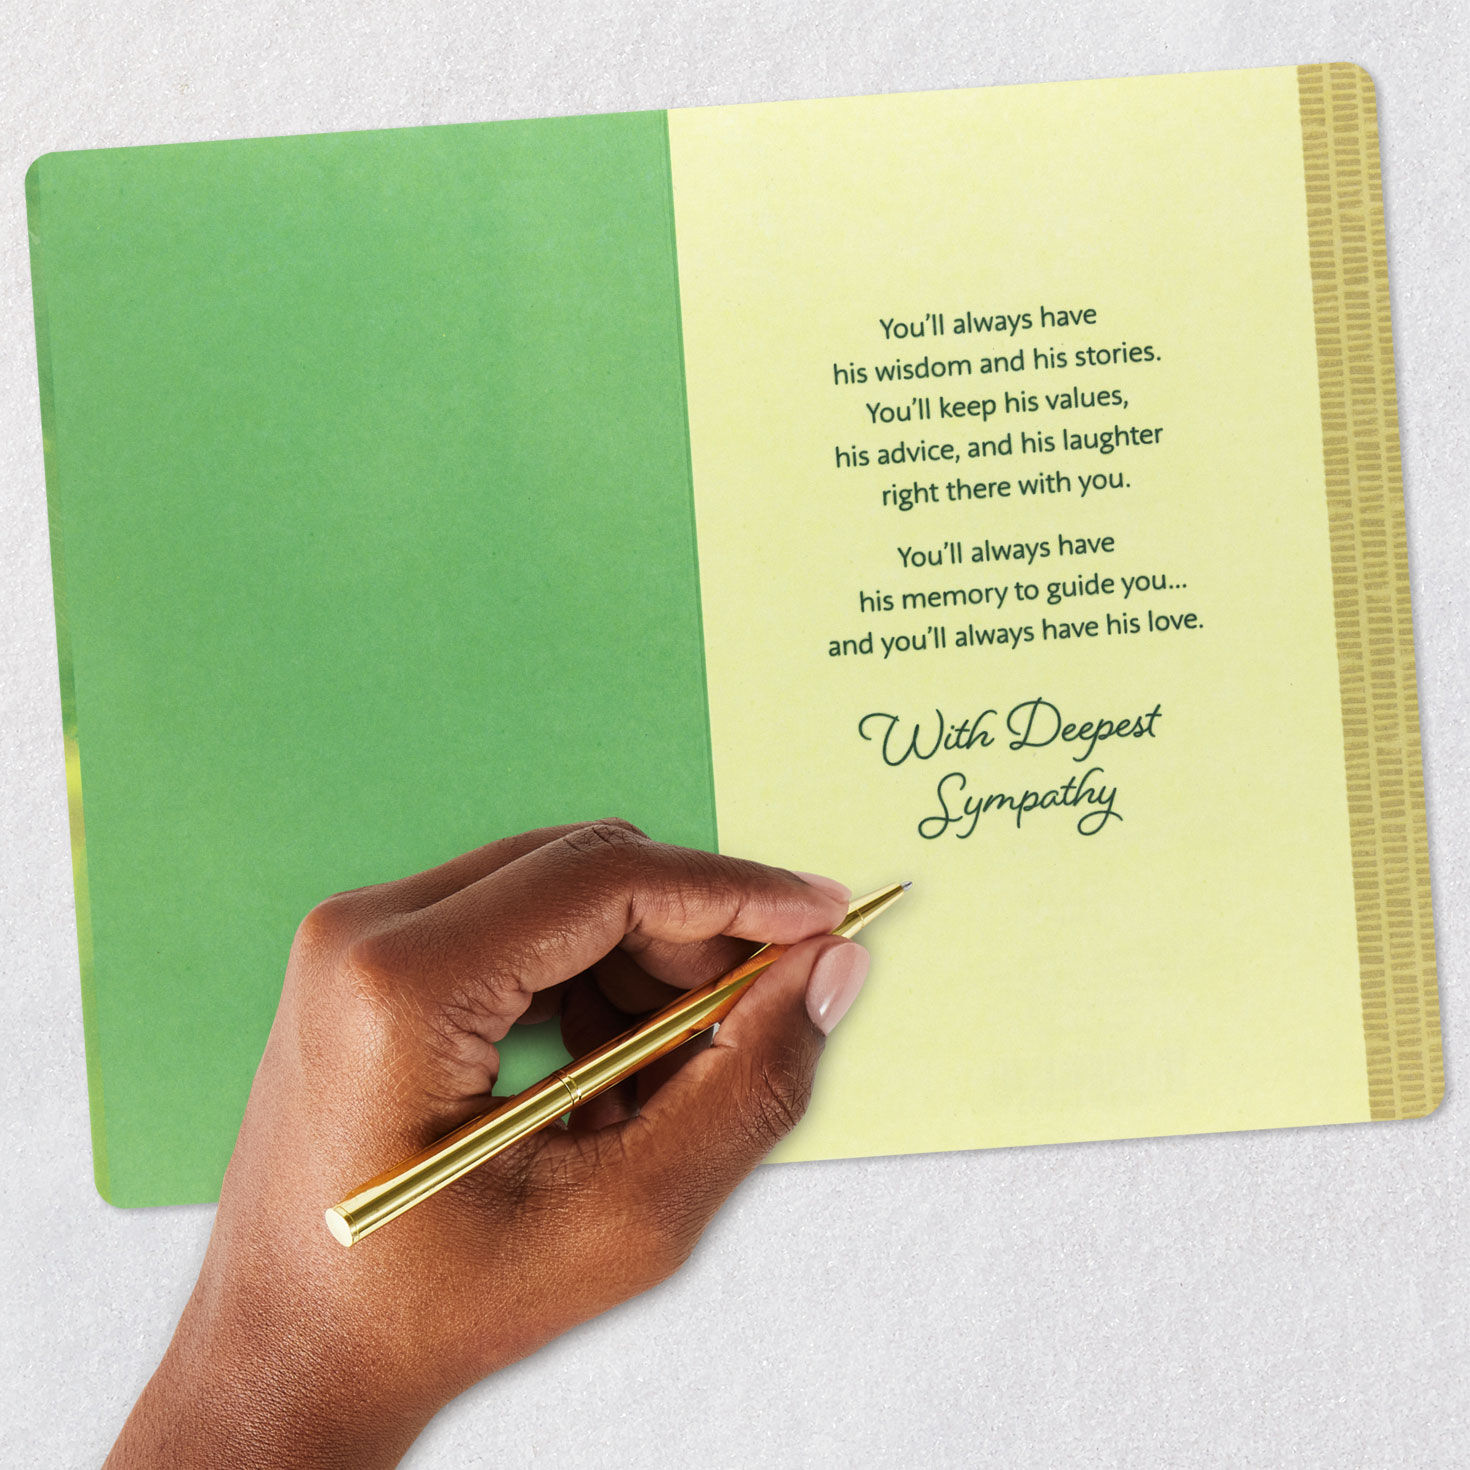 You'll always have
his wisdom and his stories.
You'll keep his values,
his advice, and his laughter
right there with you.
You'll always have
his memory to guide you...
and you'll always have his love.
With Deepest
Sympathy